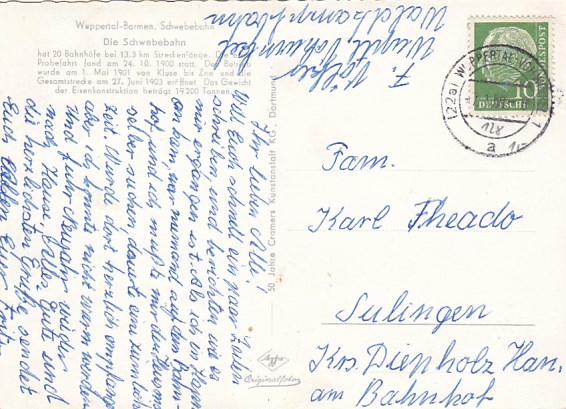 Wuppertal-Barmen, Schwebebahn
Die Schwebebahn
hat 20 Bahnhöfe bei 13.3 km Streckenlänge. Die
Probefahrt fand am 24. 10. 1900 statt. Der Betrieb
wurde am 1. Mai 1901 von Kluse bis Zoo und die
Gesamtstrecke am 27. Juni 1903 eröffnet. Das Gewicht
der Eisenkonstruktion beträgt 19200 Tonnen.
Wuppt. Vohwinkel
Waldkampfbahn
50 Jahre Cramers Kunstanstalt KG., Dortmund
Ihr lieben Alle!
Will Euch schnell ein paar Zeilen
schreiben und berichten wie es
mir ergangen ist. Als ich in Hagen
an kam, war niemand auf dem Bahn-
hof und ich mußte mir den Weg
selber suchen dauerte eine ziemliche
Zeit. Wurde dort herzlich empfangen
aber d. konnte nicht warm werden
und fuhr Neujahr wieder
nach Hause. Alles Gute und
die herzlichsten Grüße sendet
Euch allen Eure
(22a) WUPPERTAL-VOHWINKEL
a
10
DEUTSCHE
BUNDESPOST
Fam.
Karl Theado
Sulingen
Krs. Diepholz Han.
am Bahnhof
Agfa
Originalfoto